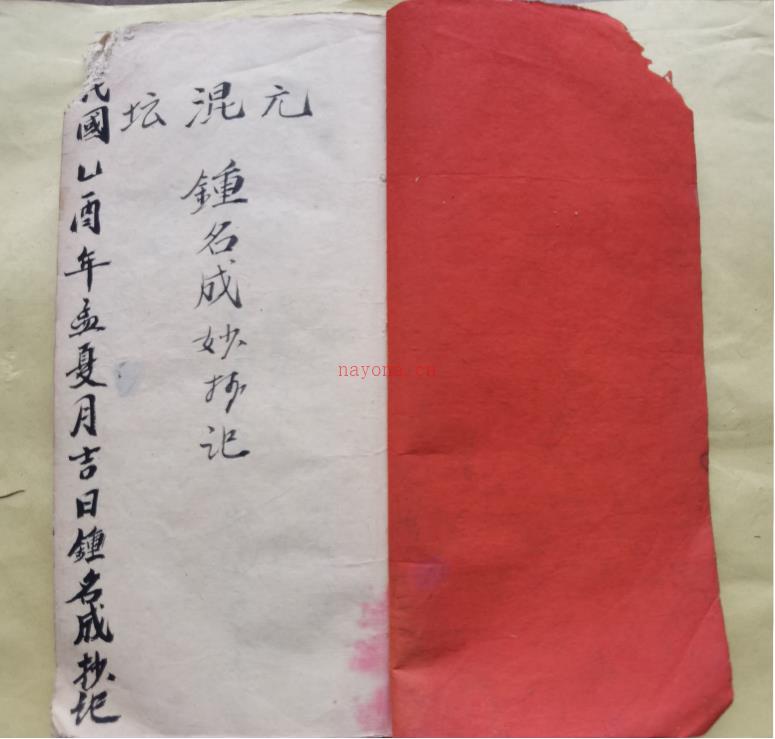 元混坛
鍾名成妙抄记
民國乙酉年孟夏月吉日鍾名成抄记
nayona.cn